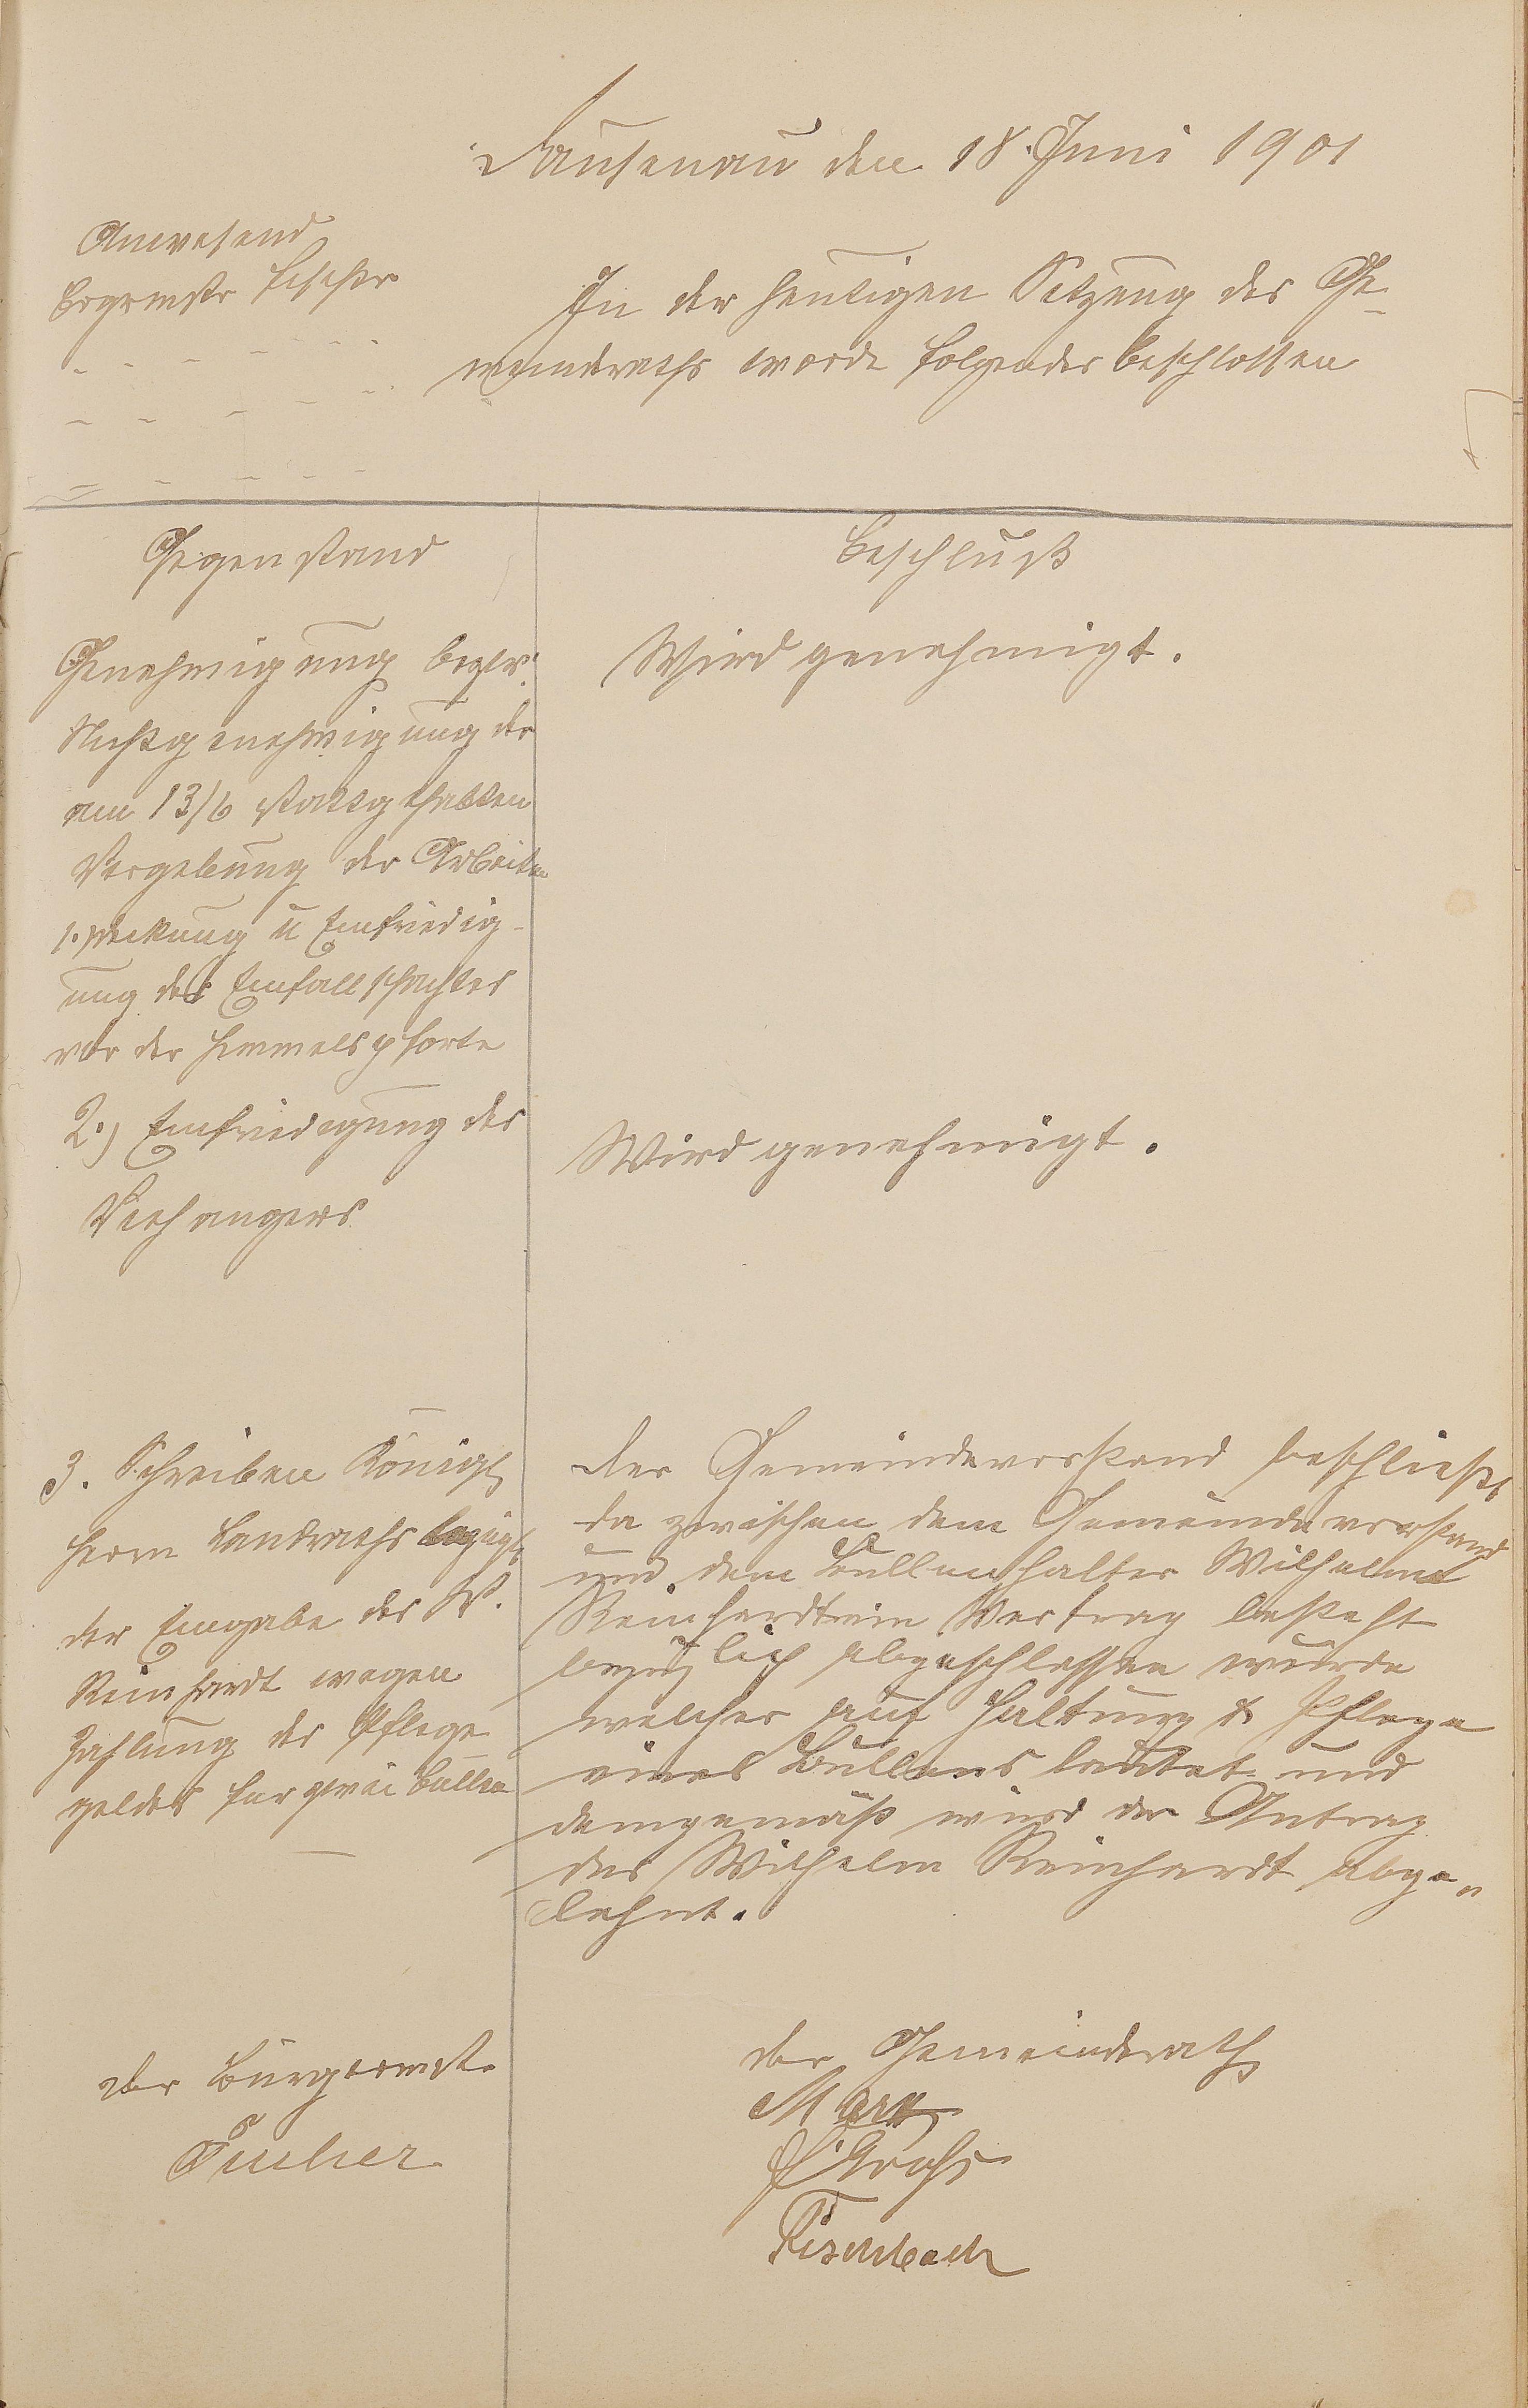 Dausenau den 18. Juni 1901
Anwesend
Brgrmstr Fischer
In der heutigen Sitzung des Ge-
meinderaths wurde folgendes beschlossen
Gegenstand
Beschluß
Genehmigung bezw.
Nichtgenehmigung der
am 13/6 stattgehabten
Vergebung der Arbeiten
1.) Deckung u Einfriedig-
ung des Einfallschachtes
vor der Himmelspforte
Wird genehmigt.
2.) Einfriedigung des
Viehangers
Wird genehmigt.
3. Schreiben Königl
Herrn Landraths bezügl
der Eingabe des W.
Reinhardt wegen
Zahlung des Pflege
geldes für zwei Bullen
Der Gemeindevorstand beschließt
da zwischen dem Gemeindevorstand
und dem Bullenhalter Wilhelm
Reinhardt ein Vertrag besteht
bezüglich abgeschlossen wurde
welcher auf Haltung & Pflege
eines Bullens lautet und
demgemäß wird der Antrag
des Wilhelm Reinhardt abge-
lehnt.
Der Bürgermstr
Fischer
Der Gemeinderath
Marx
Fischbach